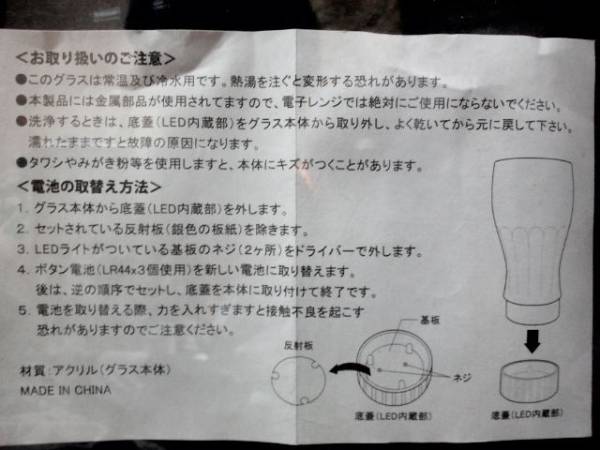 ＜お取り扱いのご注意＞
●このグラスは常温及び冷水用です。熱湯を注ぐと変形する恐れがあります。
●本製品には金属部品が使用されてますので、電子レンジでは絶対にご使用にならないでください。
●洗浄するときは、底蓋（LED内蔵部）をグラス本体から取り外し、よく乾いてから元に戻して下さい。
濡れたままですと故障の原因になります。
●タワシやみがき粉等を使用しますと、本体にキズがつくことがあります。
＜電池の取替え方法＞
1. グラス本体から底蓋（LED内蔵部）を外します。
2. セットされている反射板（銀色の板紙）を除きます。
3. LEDライトがついている基板のネジ（2ヶ所）をドライバーで外します。
4. ボタン電池（LR44x3個使用）を新しい電池に取り替えます。
後は、逆の順序でセットし、底蓋を本体に取り付けて終了です。
5. 電池を取り替える際、力を入れすぎますと接触不良を起こす
恐れがありますのでご注意ください。
材質：アクリル（グラス本体）
MADE IN CHINA
反射板
基板
ネジ
底蓋（LED内蔵部）
底蓋（LED内蔵部）